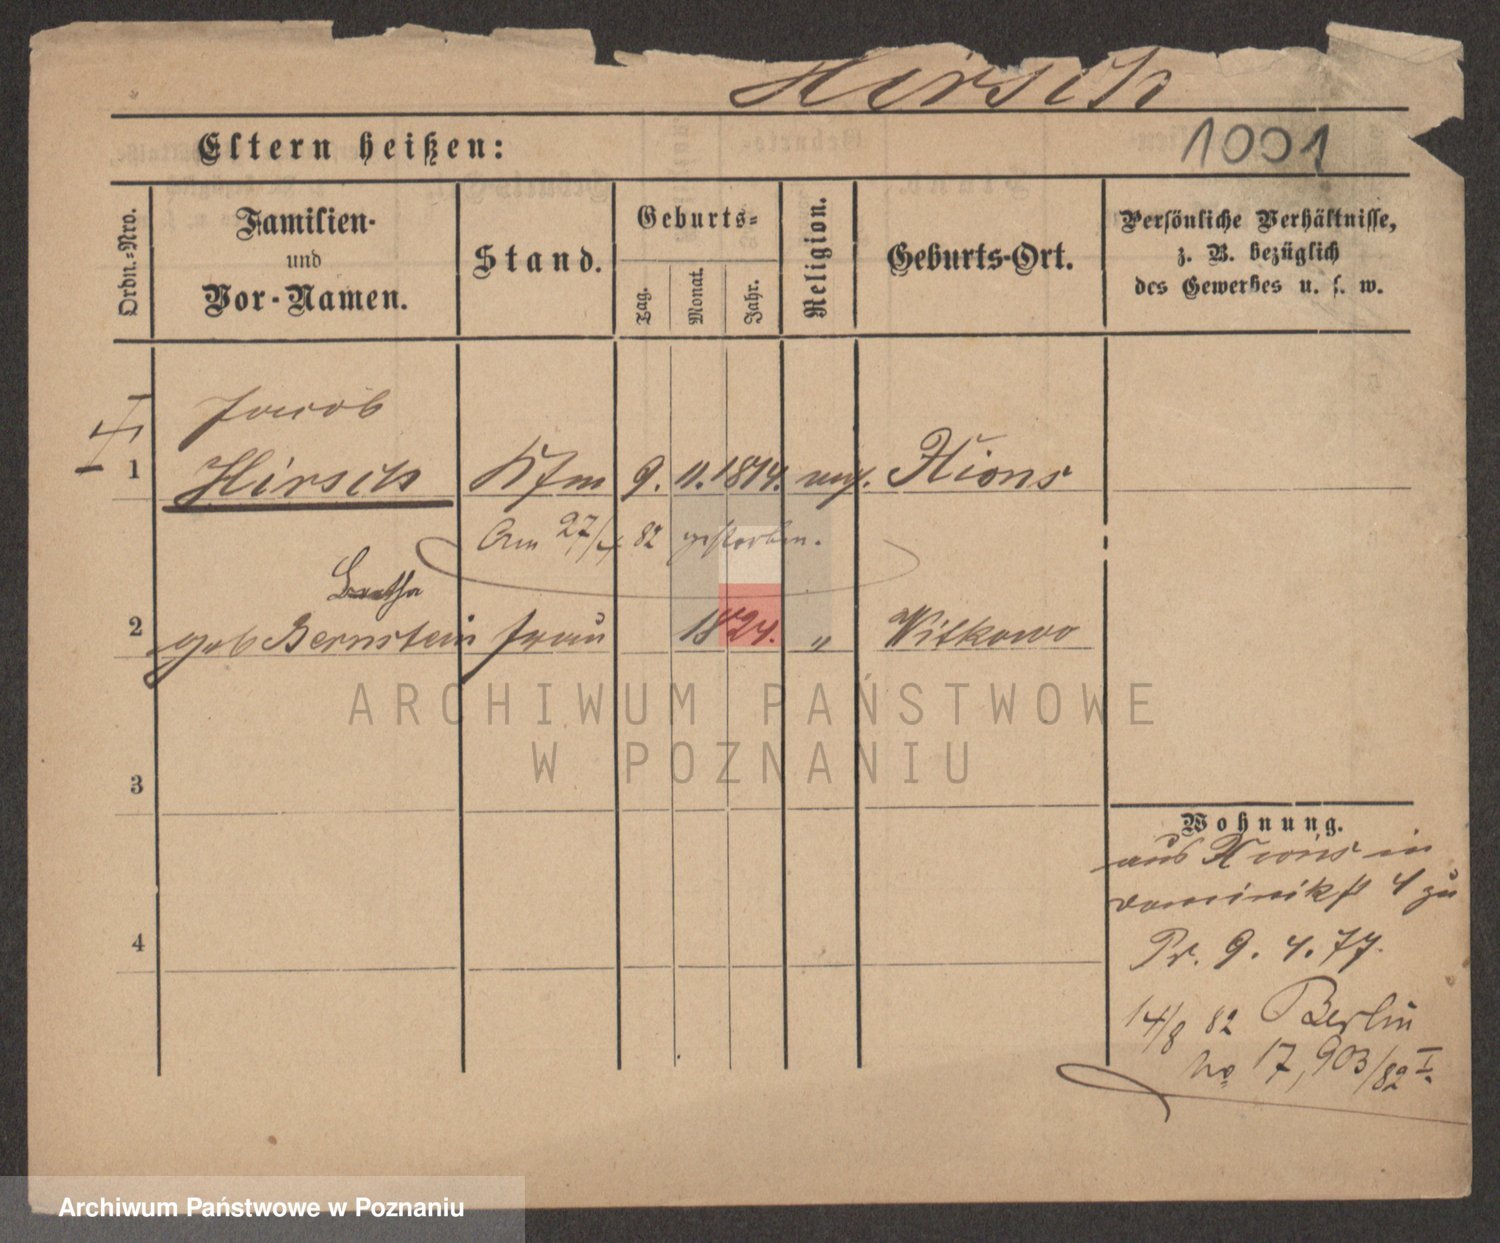 Hirsch
Eltern heißen:
1001
Ordn.-Nro.
Familien-
und
Vor-Namen.
Stand.
Geburts-
Tag.
Monat.
Jahr.
Religion.
Geburts-Ort.
Persönliche Verhältnisse,
z. B. bezüglich
des Gewerbes u. s. w.
Jacob
1 Hirsch Kfm 9. 11. 1814. Xions
Am 27/4 82 gestorben.
Bertha
2 geb Bernstein frau 1824. " Witkowo
ARCHIWUM PAŃSTWOWE
W POZNANIU
3
Wohnung.
aus Xions in
Dominikst 4 zu
4
Pr. 9. 4. 77.
14/8 82 Berlin
No 17,903/82 I.
Archiwum Państwowe w Poznaniu